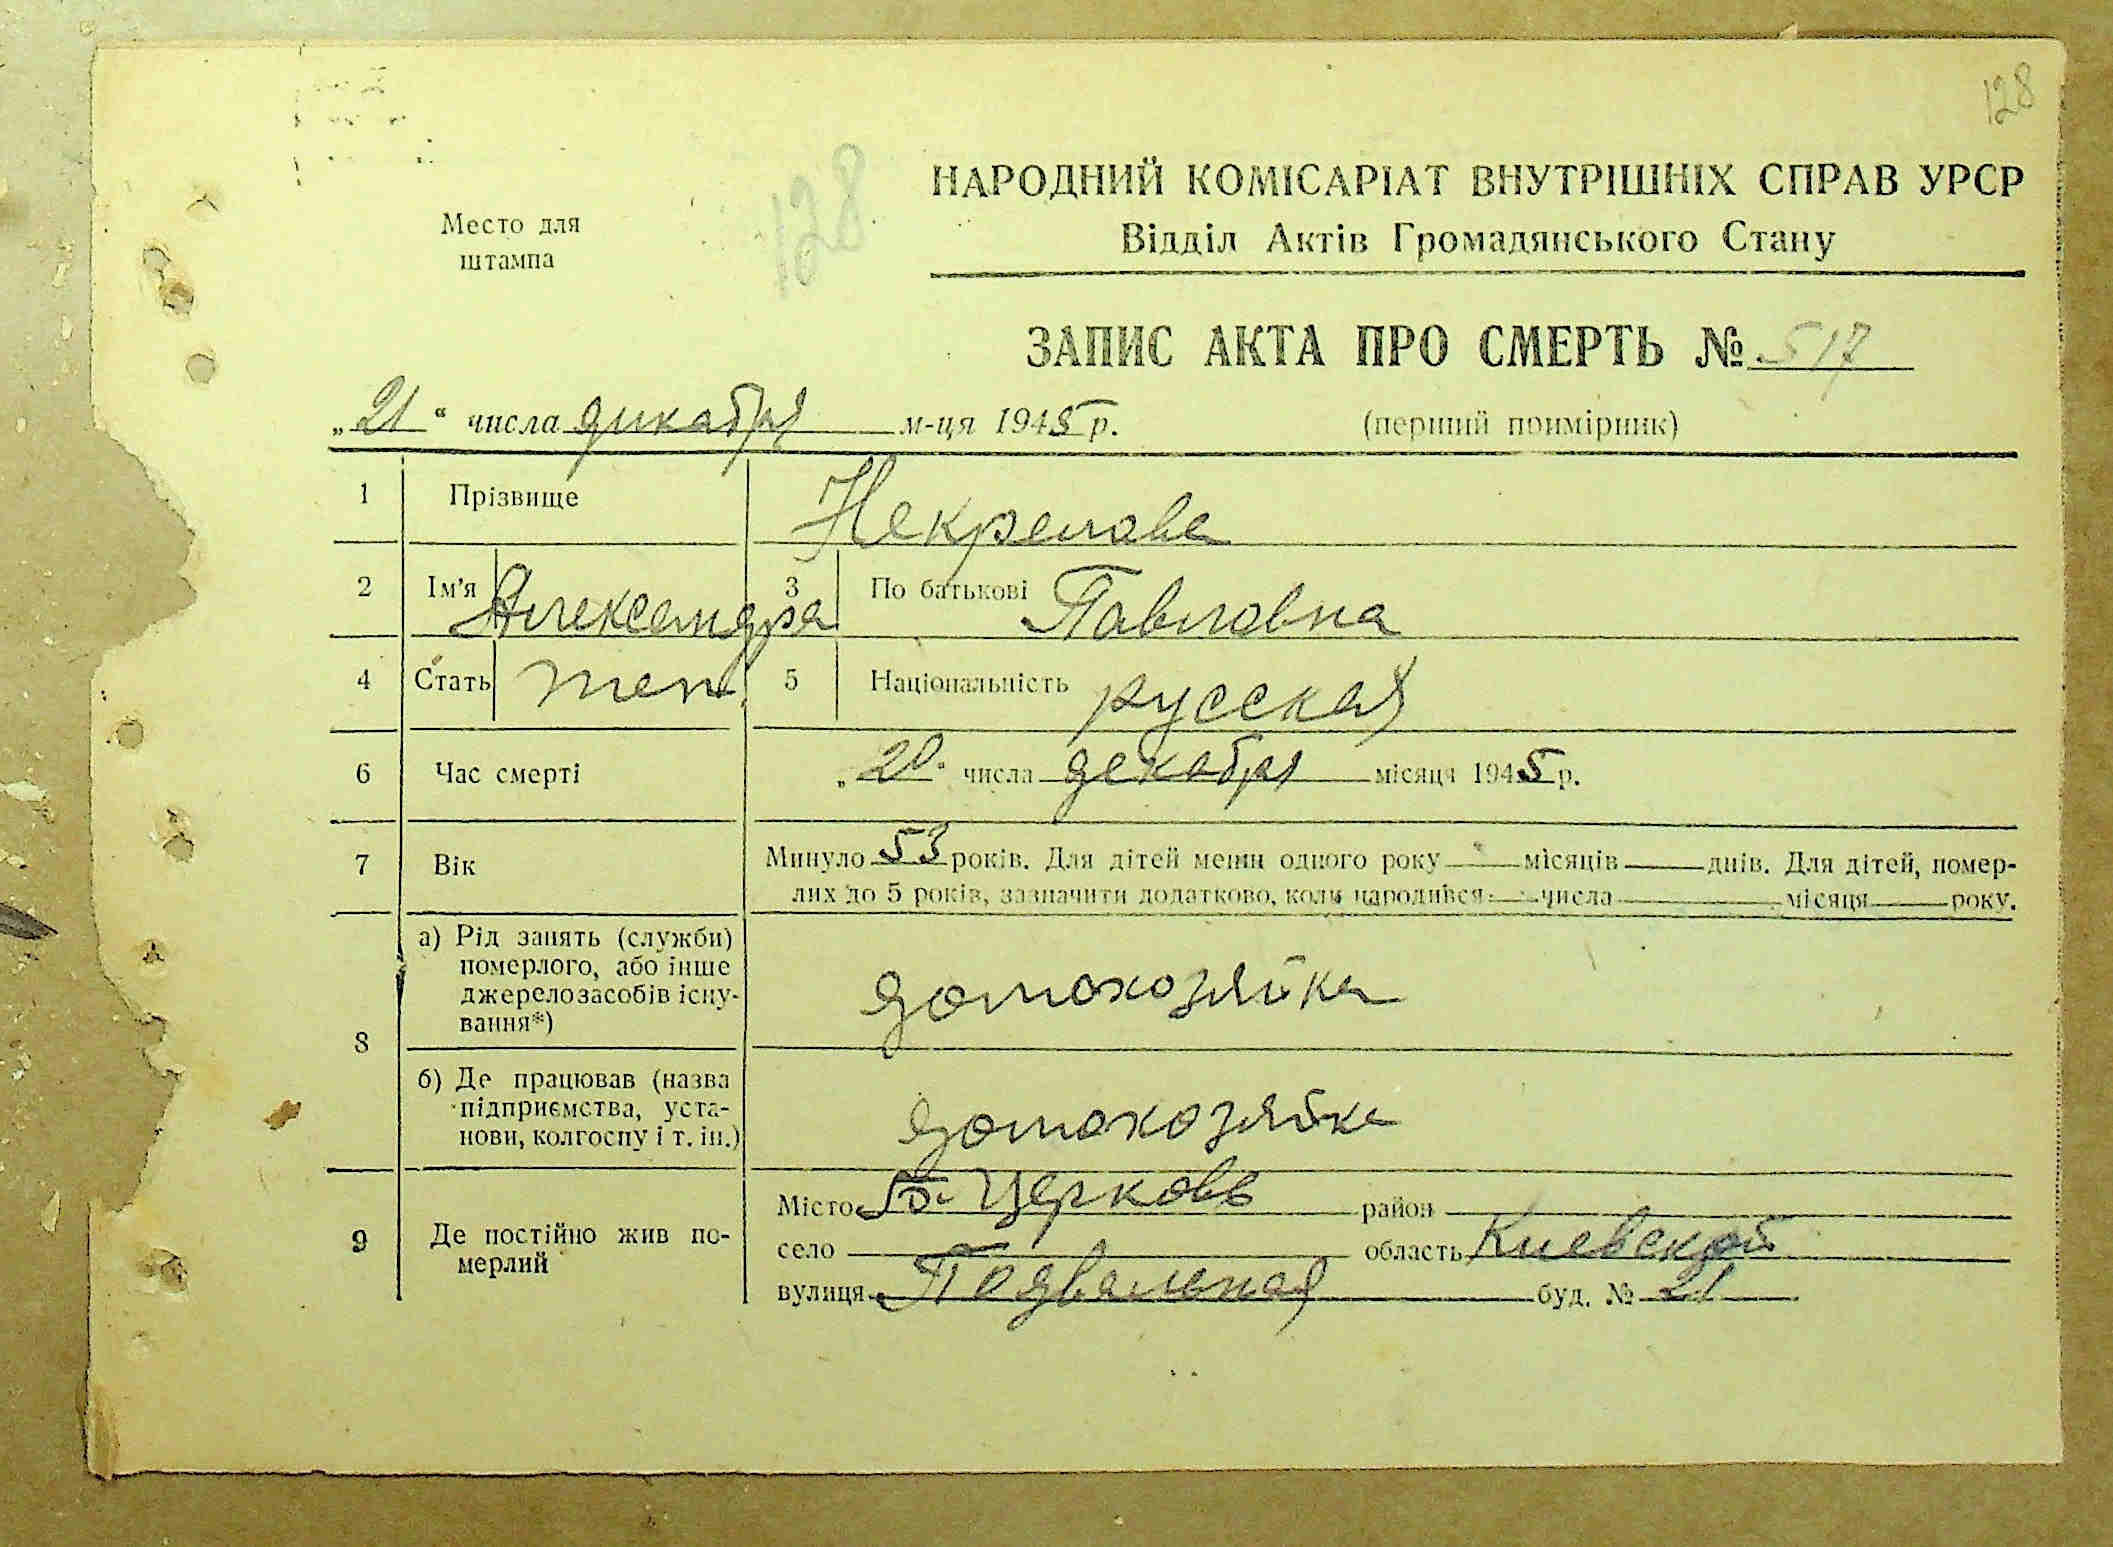 128
128
Место для
штампа
НАРОДНИЙ КОМІСАРІАТ ВНУТРІШНІХ СПРАВ УРСР
Відділ Актів Громадянського Стану
ЗАПИС АКТА ПРО СМЕРТЬ № 517
„21“ числа декабря м-ця 1945 р. (перший примірник)
1 Прізвище
2 Ім'я Александра 3 По батькові Павловна
4 Стать жен. 5 Національність русская
6 Час смерті „20. числа декабря місяця 1945 р.
7 Вік Минуло 53 років. Для дітей менш одного року місяців днів. Для дітей, помер-
лих до 5 років, зазначити додатково, коли народився: числа місяця року.
8 а) Рід занять (служби)
померлого, або інше
джерело засобів існу-
вання*) домохозяйка
б) Де працював (назва
підприємства, уста-
нови, колгоспу і т. ін.) домохозяйка
9 Де постійно жив по-
мерлий
Місто Б. Церковь район
село область Киевской
вулиця Подвальная буд. № 21